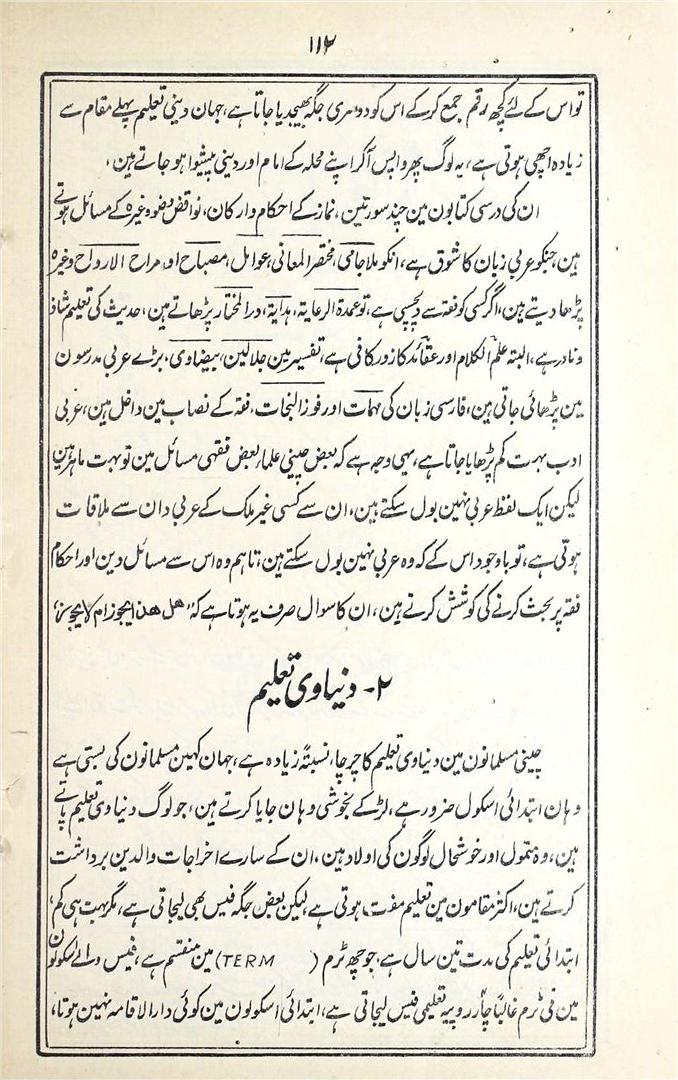 ۱۱۲
تو اس کے لئے کچھ رقم جمع کرکے اس کو دوسری جگہ بھیجدیا جاتا ہے، جہان دینی تعلیم پہلے مقام سے
زیادہ اچھی ہوتی ہے، یہ لوگ پھر واپس آکر اپنے محلہ کے امام اور دینی پیشوا ہو جاتے ہین،
ان کی درسی کتابون مین چند سورتین، نماز کے احکام وارکان، نواقض وضو وغیرہ کے مسائل ہوتے
ہین، جنکو عربی زبان کا شوق ہے، انکو ملا جامی، مختصر المعانی، عوامل، مصباح اور مراح الارواح وغیرہ
پڑھا دیتے ہین، اگر کسی کو فقہ سے دلچسپی ہے، تو عمدة الرعایة، ہدایة، در المختار پڑھاتے ہین، حدیث کی تعلیم شاذ
و نادر ہے، البتہ علم الکلام اور عقائد کا زور کافی ہے، تفسیر مین جلالین، بیضاوی، بڑے عربی مدرسون
مین پڑھائی جاتی ہین، فارسی زبان کی مہمات اور فوز النجات، فقہ کے نصاب مین داخل ہین، عربی
ادب بہت کم پڑھایا جاتا ہے، یہی وجہ ہے کہ بعض چینی علماء بعض فقہی مسائل مین تو بہت ماہر ہین
لیکن ایک لفظ عربی نہین بول سکتے ہین، ان سے کسی غیر ملک کے عربی دان سے ملاقات
ہوتی ہے، تو باوجود اس کے کہ وہ عربی نہین بول سکتے ہین، تاہم وہ اس سے مسائل دین اور احکام
فقہ پر بحث کرنے کی کوشش کرتے ہین، ان کا سوال صرف یہ ہوتا ہے کہ "هل هذا یجوز ام لا یجوز،"
۲- دنیاوی تعلیم
چینی مسلمانون مین دنیاوی تعلیم کا چرچا، نسبتہً زیادہ ہے، جہان کہین مسلمانون کی بستی ہے
وہان ابتدائی اسکول ضرور ہے، لڑکے بخوشی وہان جایا کرتے ہین، جو لوگ دنیاوی تعلیم پاتے
ہین، وہ متمول اور خوشحال لوگون کی اولاد ہین، ان کے سارے اخراجات والدین برداشت
کرتے ہین، اکثر مقامون مین تعلیم مفت ہوتی ہے، لیکن بعض جگہ فیس بھی لیجاتی ہے، مگر بہت ہی کم،
ابتدائی تعلیم کی مدت تین سال ہے، جو چھ ٹرم (TERM) مین منقسم ہے، فیس والے اسکولون
مین فی ٹرم غالباً چار روپیہ تعلیمی فیس لیجاتی ہے، ابتدائی اسکولون مین کوئی دار الاقامہ نہین ہوتا،